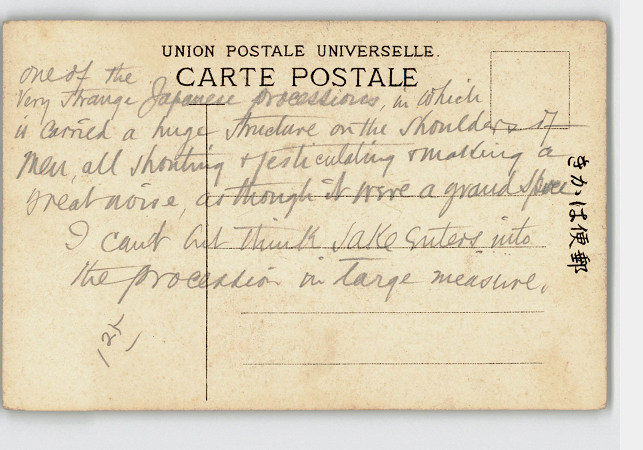 UNION POSTALE UNIVERSELLE.
CARTE POSTALE
one of the
Very Strange Japanese processions, in which
is carried a huge structure on the shoulders of
men, all shouting & gesticulating & making a
great noise, as though it were a grand spree
I can't but think Sake enters into
the procession in large measure.
きかは便郵